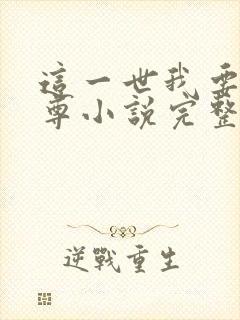 這一世我要
尊小說完整
逆戰重生